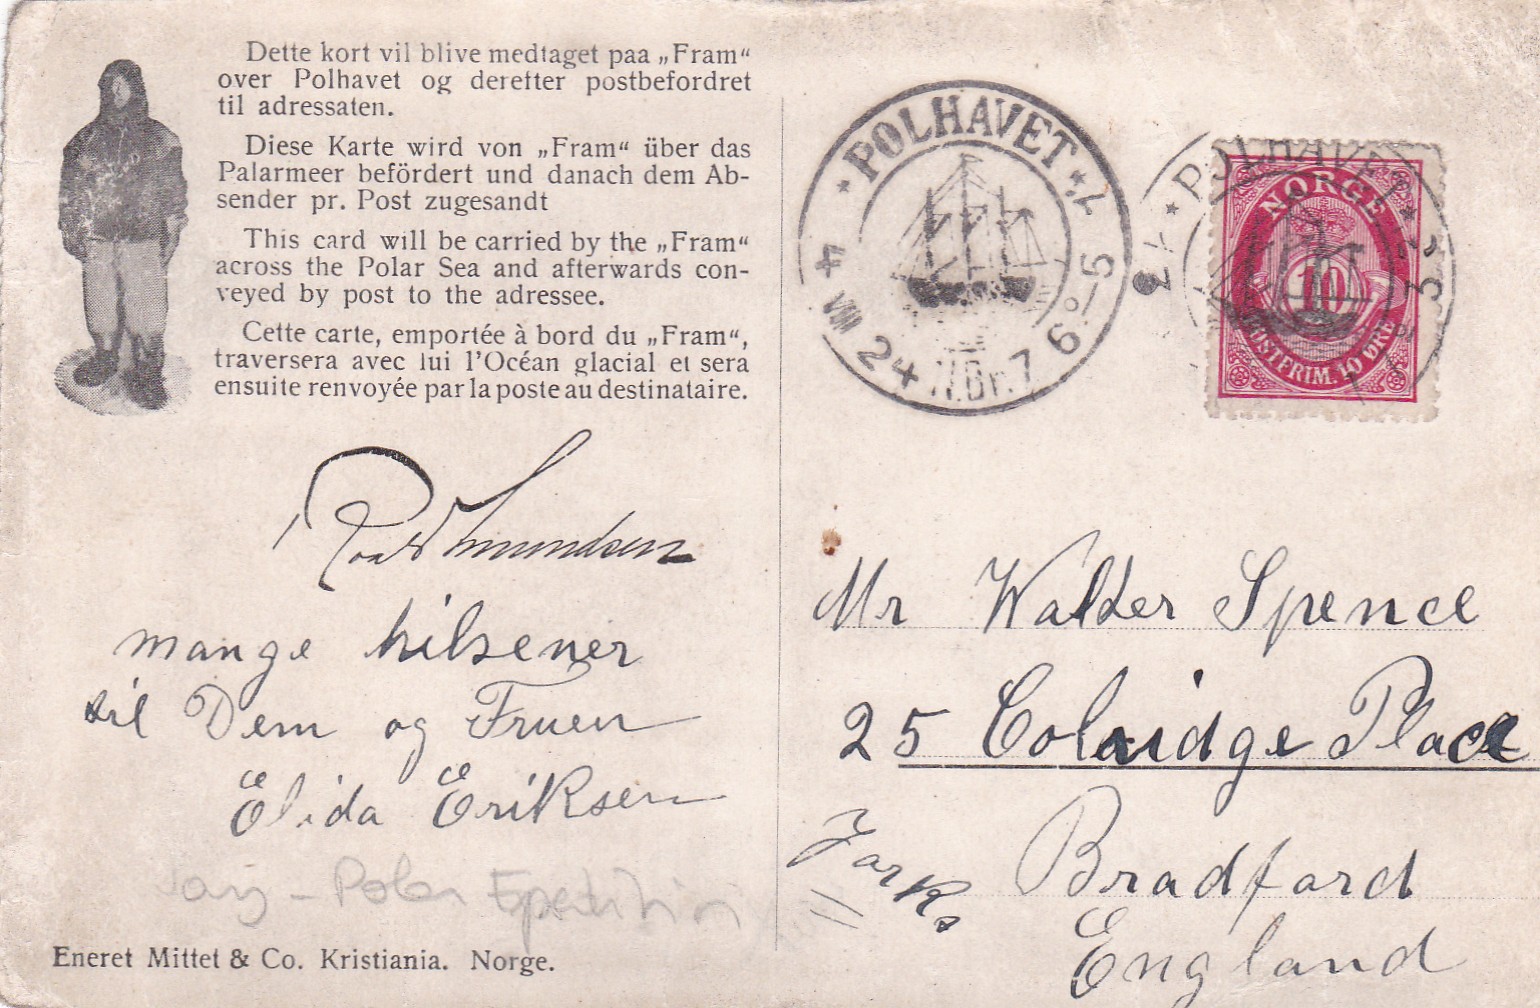 Dette kort vil blive medtaget paa „Fram“
over Polhavet og derefter postbefordret
til adressaten.
Diese Karte wird von „Fram“ über das
Palarmeer befördert und danach dem Ab-
sender pr. Post zugesandt
This card will be carried by the „Fram“
across the Polar Sea and afterwards con-
veyed by post to the adressee.
Cette carte, emportée à bord du „Fram“,
traversera avec lui l'Océan glacial et sera
ensuite renvoyée par la poste au destinataire.
Roald Amundsen
mange hilsener
til Dem og Fruen
Elida Eriksen
Polar
Eneret Mittet & Co. Kristiania. Norge.
POLHAVET
24 VIII
POLHAVET
NORGE
10
POSTFRIM. 10 ØRE
Mr Walter Spence
25 Colridge Place
Bradford
Yorks
England